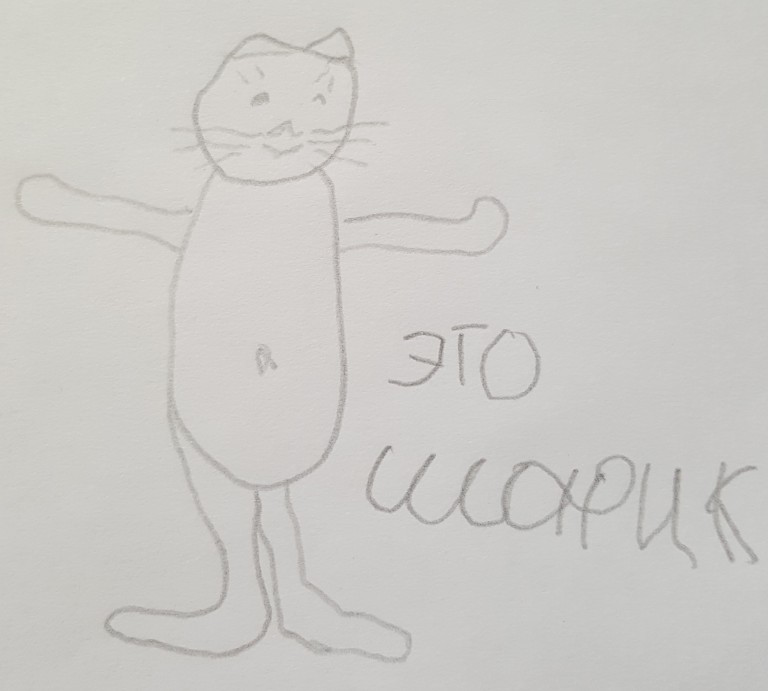 ЭТО
ШАРИК